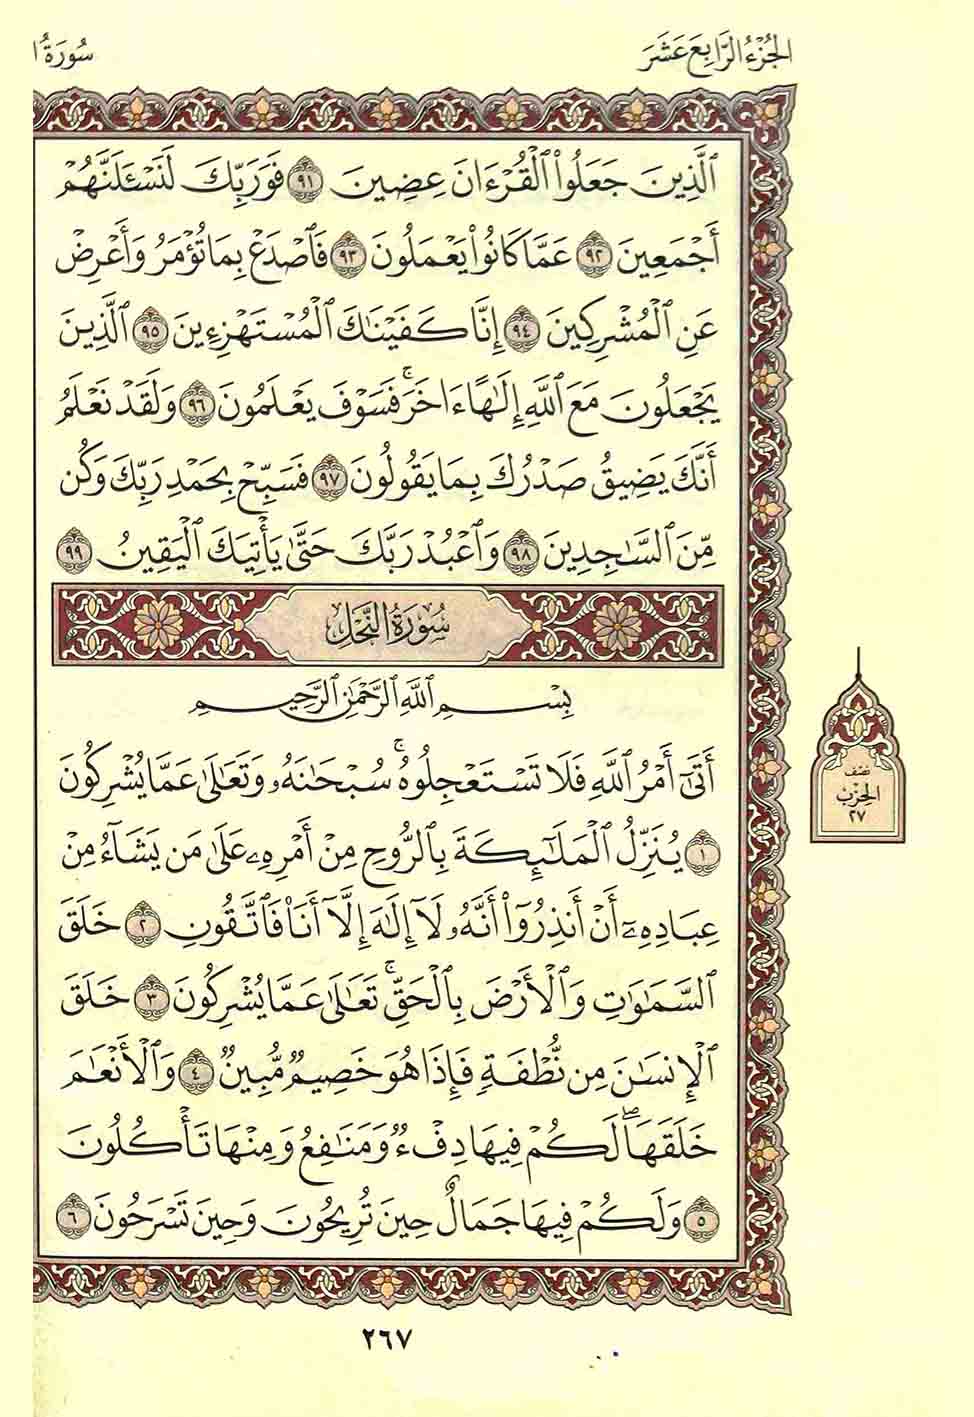 الجُزْءُ الرَّابِعَ عَشَرَ
سُورَةُ ا
ٱلَّذِينَ جَعَلُواْ ٱلۡقُرۡءَانَ عِضِينَ ٩١ فَوَرَبِّكَ لَنَسۡـَٔلَنَّهُمۡ
أَجۡمَعِينَ ٩٢ عَمَّا كَانُواْ يَعۡمَلُونَ ٩٣ فَٱصۡدَعۡ بِمَا تُؤۡمَرُ وَأَعۡرِضۡ
عَنِ ٱلۡمُشۡرِكِينَ ٩٤ إِنَّا كَفَيۡنَٰكَ ٱلۡمُسۡتَهۡزِءِينَ ٩٥ ٱلَّذِينَ
يَجۡعَلُونَ مَعَ ٱللَّهِ إِلَٰهًا ءَاخَرَۚ فَسَوۡفَ يَعۡلَمُونَ ٩٦ وَلَقَدۡ نَعۡلَمُ
أَنَّكَ يَضِيقُ صَدۡرُكَ بِمَا يَقُولُونَ ٩٧ فَسَبِّحۡ بِحَمۡدِ رَبِّكَ وَكُن
مِّنَ ٱلسَّٰجِدِينَ ٩٨ وَٱعۡبُدۡ رَبَّكَ حَتَّىٰ يَأۡتِيَكَ ٱلۡيَقِينُ ٩٩
سُورَةُ النَّحۡلِ
بِسۡمِ ٱللَّهِ ٱلرَّحۡمَٰنِ ٱلرَّحِيمِ
أَتَىٰٓ أَمۡرُ ٱللَّهِ فَلَا تَسۡتَعۡجِلُوهُۚ سُبۡحَٰنَهُۥ وَتَعَٰلَىٰ عَمَّا يُشۡرِكُونَ
١ يُنَزِّلُ ٱلۡمَلَٰٓئِكَةَ بِٱلرُّوحِ مِنۡ أَمۡرِهِۦ عَلَىٰ مَن يَشَآءُ مِنۡ
عِبَادِهِۦٓ أَنۡ أَنذِرُوٓاْ أَنَّهُۥ لَآ إِلَٰهَ إِلَّآ أَنَا۠ فَٱتَّقُونِ ٢ خَلَقَ
ٱلسَّمَٰوَٰتِ وَٱلۡأَرۡضَ بِٱلۡحَقِّۚ تَعَٰلَىٰ عَمَّا يُشۡرِكُونَ ٣ خَلَقَ
ٱلۡإِنسَٰنَ مِن نُّطۡفَةٖ فَإِذَا هُوَ خَصِيمٞ مُّبِينٞ ٤ وَٱلۡأَنۡعَٰمَ
خَلَقَهَاۖ لَكُمۡ فِيهَا دِفۡءٞ وَمَنَٰفِعُ وَمِنۡهَا تَأۡكُلُونَ
٥ وَلَكُمۡ فِيهَا جَمَالٌ حِينَ تُرِيحُونَ وَحِينَ تَسۡرَحُونَ ٦
نصف
الحِزْب
٢٧
٢٦٧